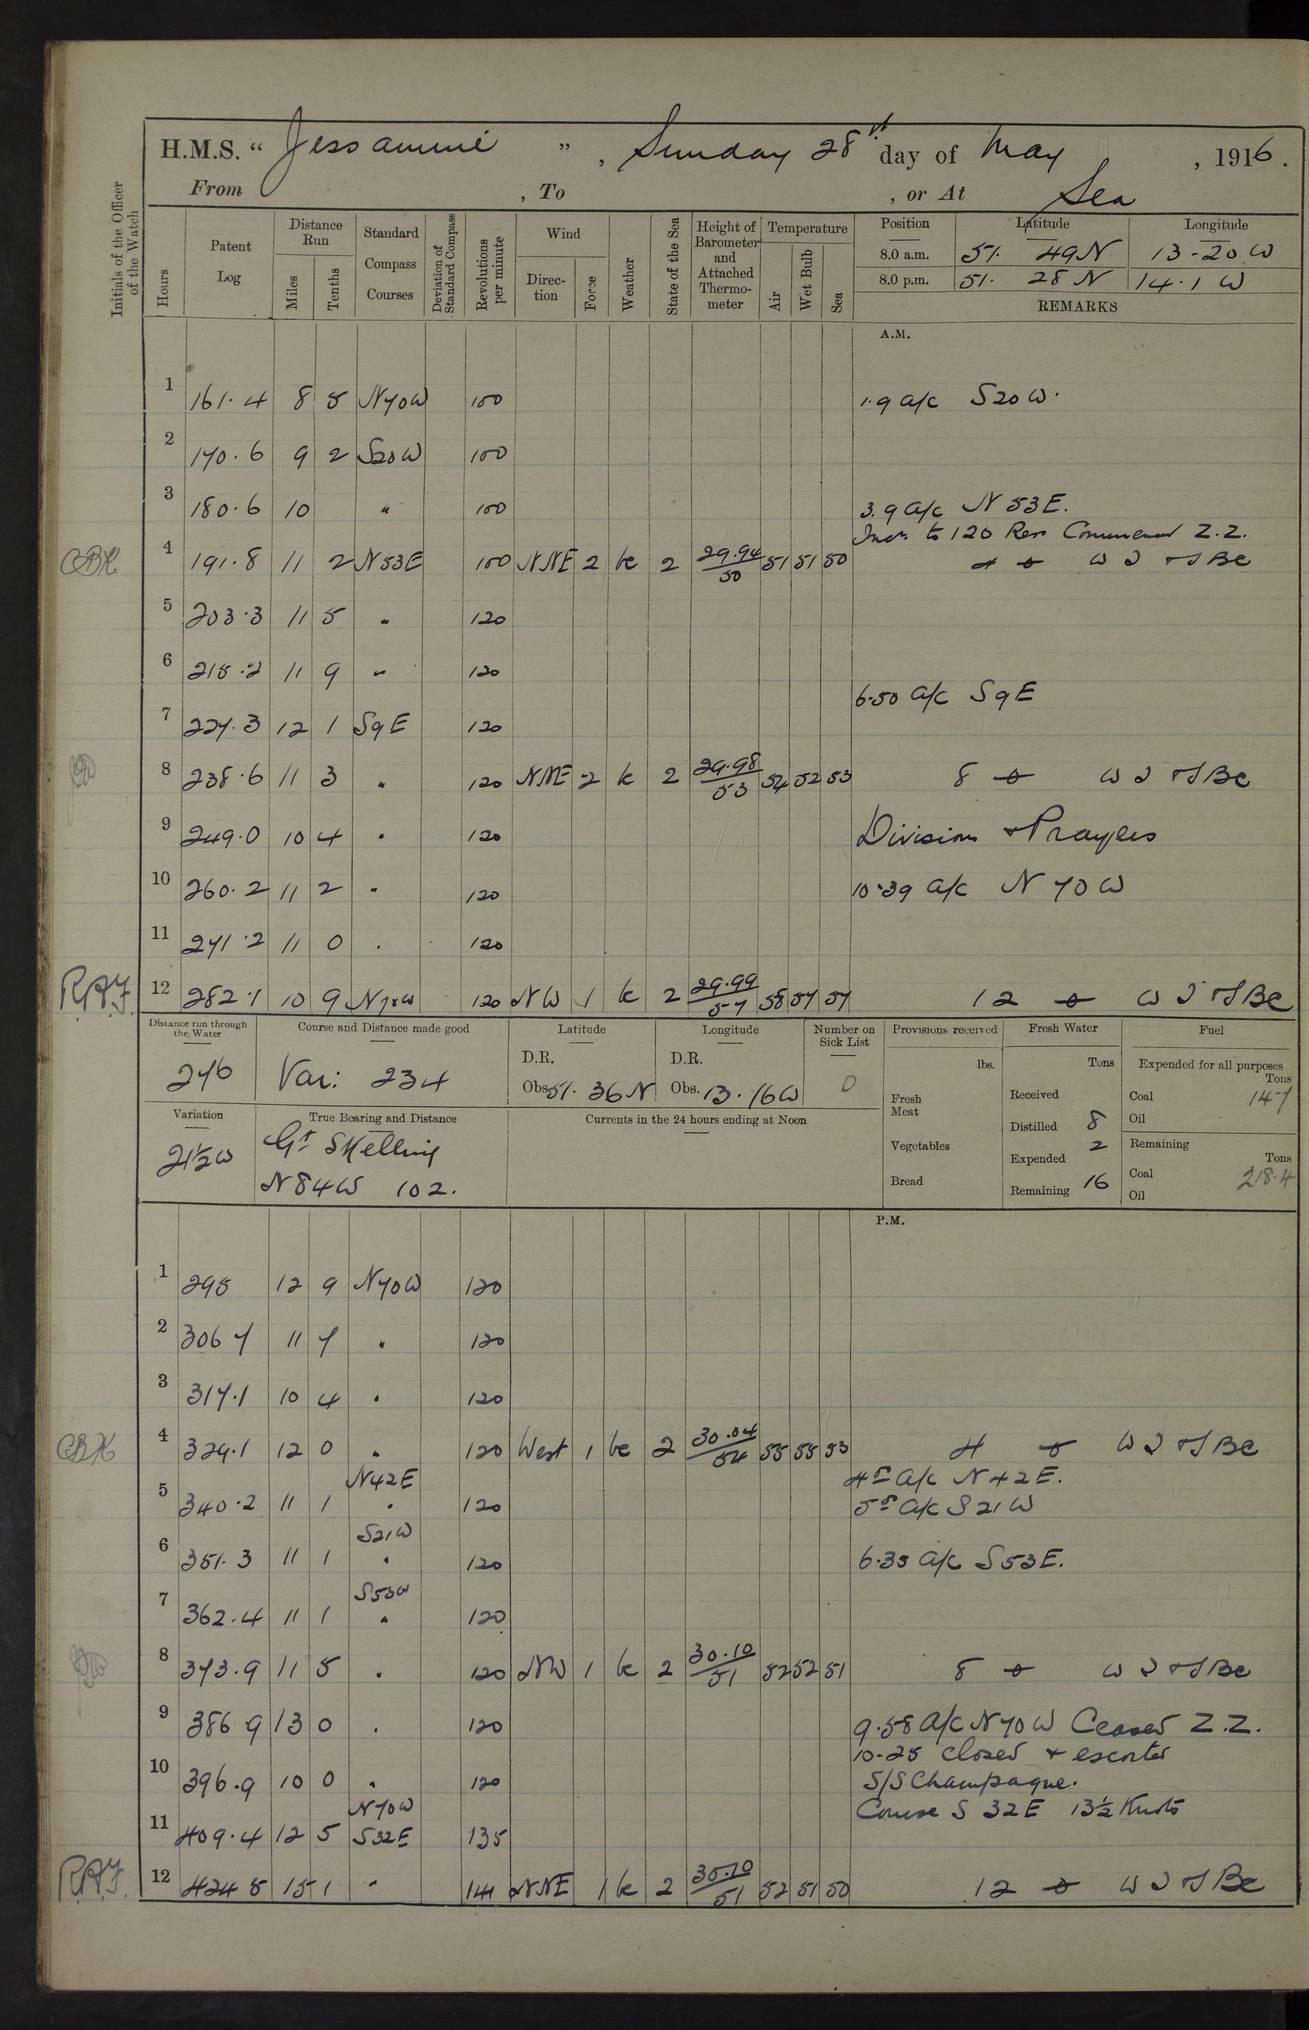 H.M.S. “ Jessamine ” , Sunday 28th day of May , 1916.
From , To , or At Sea
Initials of the Officer of the Watch
Hours
Patent Log
Distance Run Miles Tenths
Standard Compass Courses
Deviation of Standard Compass
Revolutions per minute
Wind Direction Force
Weather
State of the Sea
Height of Barometer and Attached Thermometer
Temperature Air Wet Bulb Sea
Position Latitude Longitude
8.0 a.m. 51. 49 N 13-20 W
8.0 p.m. 51. 28 N 14.1 W
REMARKS
A.M.
1 161.4 8 5 N70W 100 1.9 a/c S20W.
2 170.6 9 2 S20W 100
3 180.6 10 " 100 3.9 a/c N 53E.
Incr. to 120 Revs Commenced Z.Z.
CBK 4 191.8 11 2 N53E 100 NNE 2 bc 2 29.94/50 51 51 50 4
5 203.3 11 5 " 120
6 215.2 11 9 " 120
6.50 a/c S9E
7 227.3 12 1 S9E 120
8 238.6 11 3 " 120 NNE 2 bc 2 29.98/53 54 52 53 8
9 249.0 10 4 " 120 Divisions + Prayers
10 260.2 11 2 " 120 10.39 a/c N 70 W
11 271.2 11 0 " 120
12 282.1 10 9 N70W 120 NW 1 bc 2 29.99/57 58 57 57 12
Distance run through the Water 246
Course and Distance made good Var: 234
Latitude D.R. Obs. 51. 36 N
Longitude D.R. Obs. 13.16W
Number on Sick List 0
Provisions received lbs. Fresh Meat Vegetables Bread
Fresh Water Tons Received Distilled 8 Expended 2 Remaining 16
Fuel Expended for all purposes Tons Coal Oil
Remaining Tons Coal 218.4 Oil
Variation 21½W
True Bearing and Distance
Gt Skelling
N84W 102.
Currents in the 24 hours ending at Noon
P.M.
1 295 12 9 N70W 120
2 306 7 11 7 " 120
3 317.1 10 4 " 120
CBK 4 329.1 12 0 " 120 West 1 bc 2 30.04/54 55 55 53 4
N42E 4 a/c N42E.
5 340.2 11 1 " 120 5 a/c S21W
S21W
6 351.3 11 1 " 120 6.35 a/c S53E.
S53W
7 362.4 11 1 " 120
8 373.9 11 5 " 120 NW 1 bc 2 30.10/51 52 52 51 8
9 386 9 13 0 " 120 9.58 a/c N70W Ceased Z.Z.
10-25 closed + escorted
10 396.9 10 0 " 120 S/S Champagne.
N70W Course S 32E 13½ Knots
11 409.4 12 5 S32E 135
12 424 5 15 1 " 141 NNE 1 bc 2 30.10/51 52 51 50 12